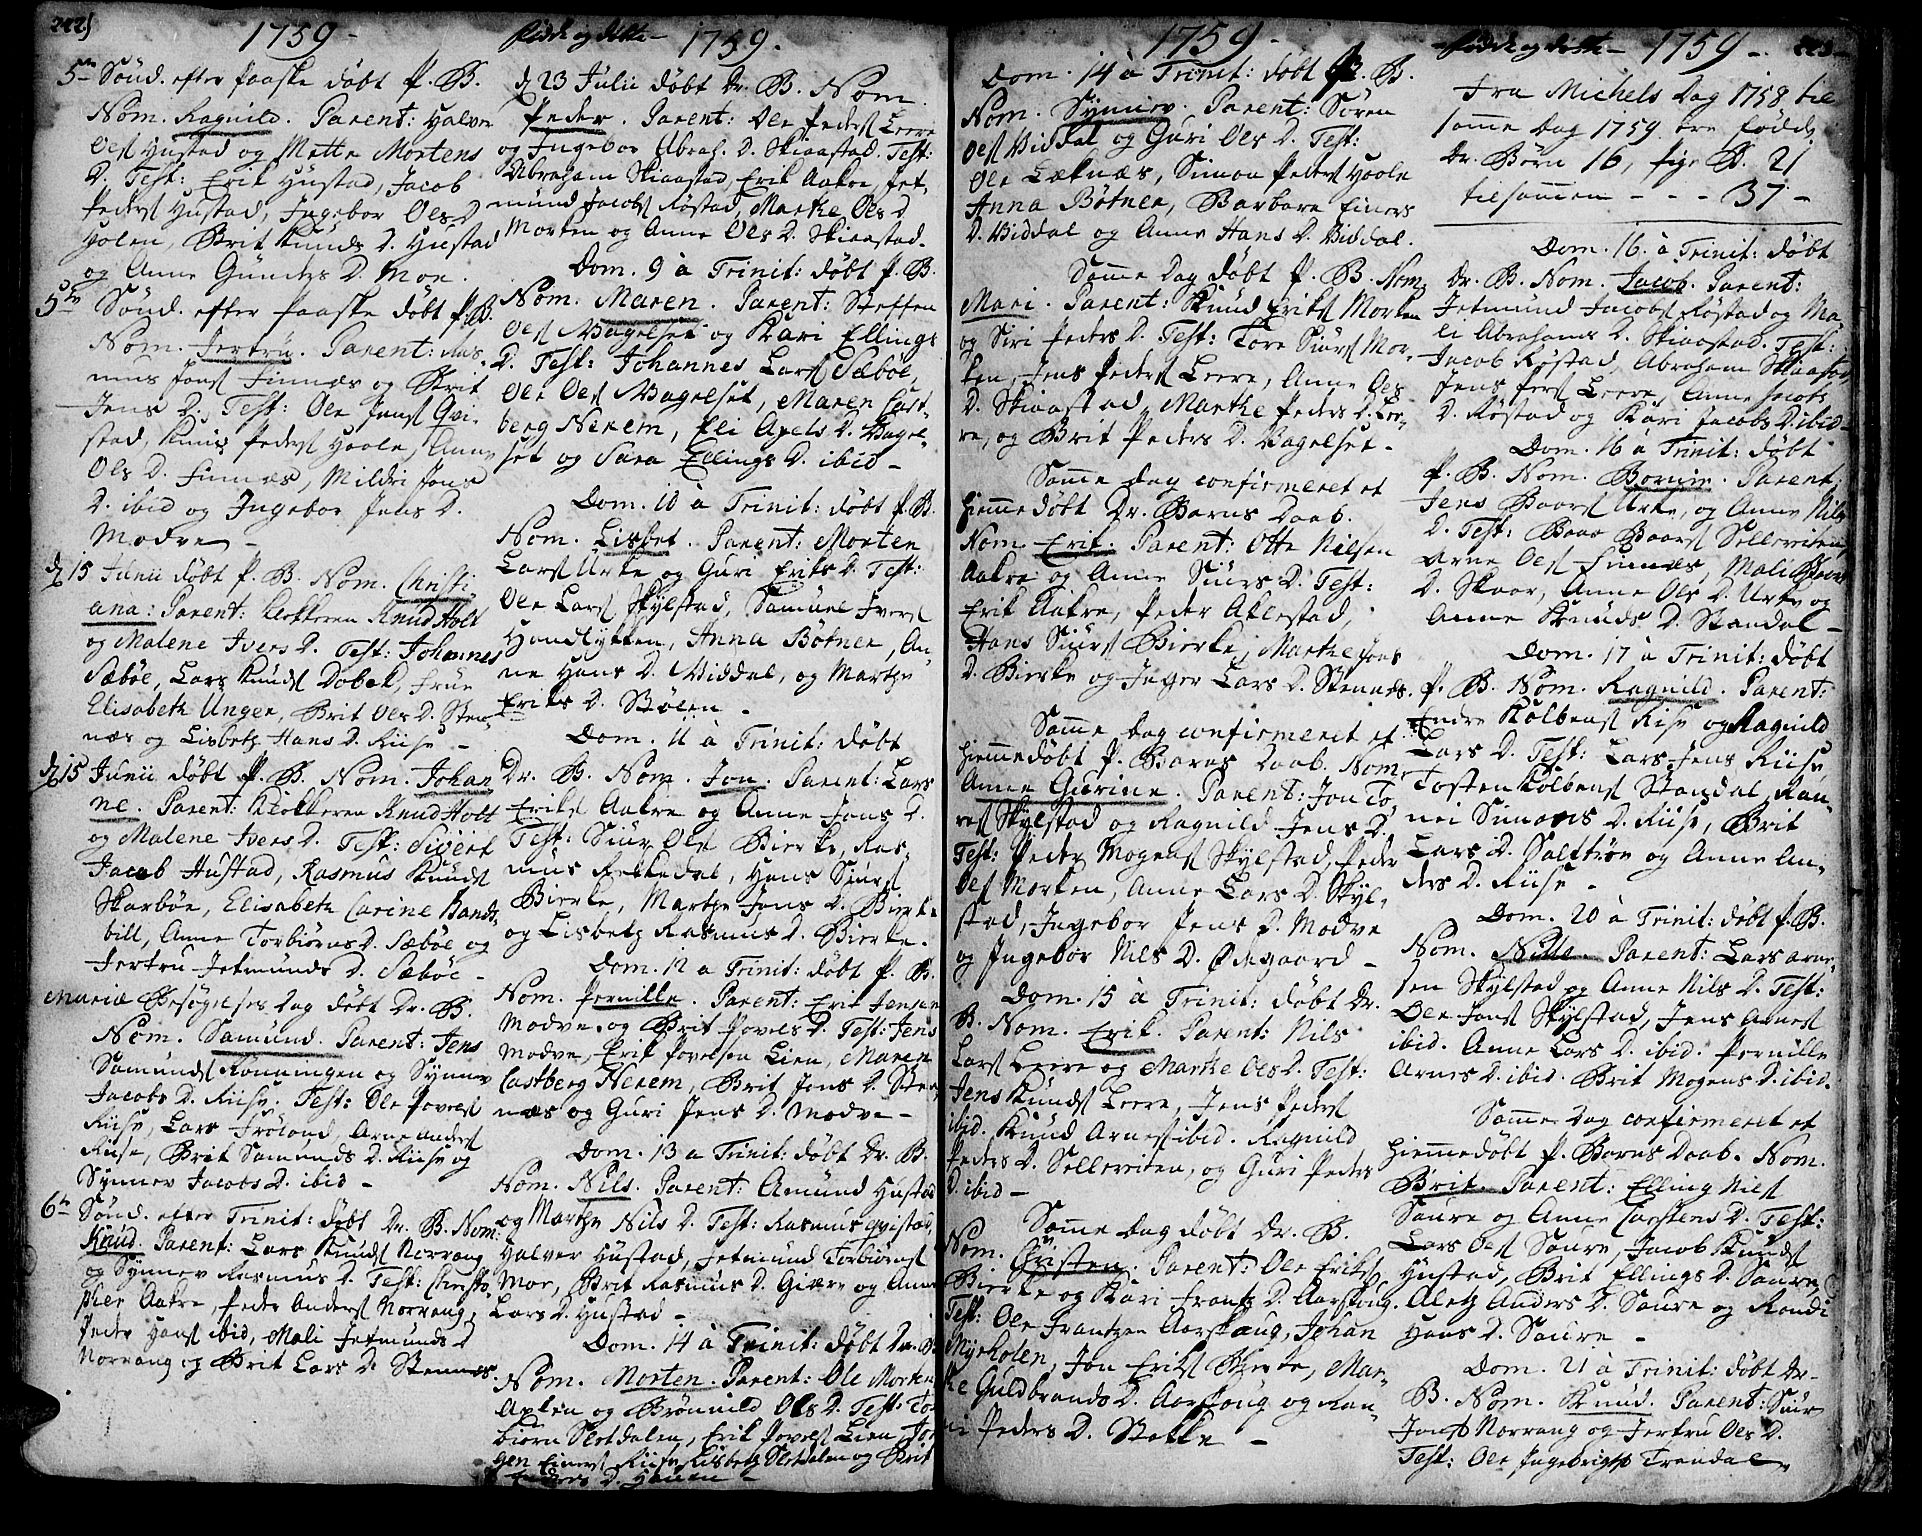 242)
1759 -
5te Sönd. efter Paaske döbt P. B.
Nom. Ragnild. Parent: Halvor
Oels Hustad og Mette Mortens
D. Test: Erik Hustad, Jacob
Peders Hustad, Ingebor Oels D.
Holen, Brit Knuds D. Hustad
og Anne Gunders D. Moe.
5te Sönd. efter Paaske döbt P. B.
Nom. Jertru. Parent: Ras-
mus Jons Finnæs og Brit
Jens D. Test: Ole Jens Qvi-
stad, Knud Peders Hoole, Anne
Ols D. Finnæs, Mildri Jons
D. ibid og Ingebor Jens D.
Modve -
D. 15 Junii döbt P. B. Nom. Christi-
ana: Parent: Klokkeren Knud Holt
og Malene Ivers D. Test: Johannes
Sæböe, Lars Knuds Dobek, Frue
Elisabeth Unger, Brit Ols D. Sten-
næs og Lisbeth Hans D. Riise -
D. 15 Junii döbt P. B. Nom. Johan-
ne. Parent: Klokkeren Knud Holt
og Malene Ivers D. Test: Sivert
Jacob Hustad, Rasmus Knuds
Skarböe, Elisabeth Carine Randt-
bill, Anne Torbiörns D. Sæböe og
Jertru Jetmunds D. Sæböe -
Mariæ Besögelses Dag döbt Dr. B.
Nom. Samund. Parent: Jens
Samunds Rönningen og Synnev
Jacobs D. Riise. Test: Ole Povels
Riise, Lars Fröland, Arne Anders
Riise, Brit Samunds D. Riise og
Synnev Jacobs D. ibid -
6te Sönd. efter Trinit: döbt Dr. B. Nom:
Knud. Parent: Lars Knuds Norrang
og Synnev Rasmus D. Test: Christo-
pher Aakre, Peder Anders Norrang,
Peder Hans ibid, Mali Jetmunds D.
Norrang og Brit Lars D. Stennes.
födde og döbte - 1759.
D. 23 Julii döbt Dr. B. Nom.
Peder. Parent: Ole Peders Leere
og Ingebor Abrah. D. Skiaastad. Test:
Abraham Skiaastad, Erik Aakre, Jet-
mund Jacobs Röstad, Marthe Ols D.
Morken og Anne Ols D. Skiaastad.
Dom. 9 à Trinit: döbt P. B.
Nom. Maren. Parent: Steffen
Oels Wagelset og Kari Ellings
D. Test: Johannes Lars Sæböe,
Ole Oels Wagelset, Maren Cast-
berg Nerem, Eli Axels D. Wagel-
set og Sara Ellings D. ibid -
Dom. 10 à Trinit: döbt P. B.
Nom. Lisbet. Parent: Morten
Lars Urke og Guri Eriks D. Test:
Ole Lars Skylstad, Samuel Ivers
Hondlykken, Anna Bötner, An-
ne Hans D. Widdal, og Marthe
Eriks D. Bölen -
Dom. 11 à Trinit: döbt
Dr. B. Nom. Jon. Parent: Lars
Eriks Aakre og Anne Jons D.
Test: Siur Ols Bierke, Ras-
mus Rekkedal, Hans Siurs
Bierke, Marthe Jons D. Bierke
og Lisbeth Rasmus D. Bierke.
Dom. 12 a Trinit: döbt P. B.
Nom. Pernille. Parent: Erik Jensen
Modve, og Brit Povels D. Test: Jens
Modve, Erik Povelsen Lien, Maren
Castberg Nerem, Brit Jens D. Sten-
næs og Guri Jens D. Modve -
Dom. 13 a Trinit: döbt Dr. B.
Nom. Nils. Parent: Amund Hustad
og Marthe Nils D. Test: Rasmus Qvistad,
Halver Hustad, Jetmund Torbiörns
Moe, Brit Rasmus D. Giære og Anne
Lars D. Hustad -
Dom. 14 à Trinit: döbt Dr. B.
Nom. Morten. Parent: Ole Morten
Axlen og Brönnild Ols D. Test: Tor-
biörn Sletdalen, Erik Povels Lien, Jör-
gen Einers Riise, Lisbeth Sletdalen og Brit
Anders D. Hauen -
1759 -
Dom. 14 à Trinit: döbt P. B.
Nom. Synnev. Parent: Sören
Oels Widdal og Guri Oels D. Test:
Ole Leknæs, Simon Peders Hoole
Anna Bötner, Barbare Einers
D. Widdal og Anne Hans D. Widdal.
Samme Dag döbt P. B. Nom.
Mari. Parent: Knud Eriks Morken
og Siri Peders D. Test: Tore Siurs Mor-
ken, Jens Peders Leere, Anne Oels
D. Skiaastad, Marthe Peders D. Lee-
re, og Brit Peders D. Wagelset -
Samme dag confirmeret et
hiemmedöbt Dr. Barns Daab.
Nom. Erik. Parent: Otte Nilsen
Aakre og Anne Siurs D. Test:
Erik Aakre, Peder Aklestad,
Hans Siurs Bierke, Marthe Jons
D. Bierke og Inger Lars D. Stennes.
Samme Dag confirmeret et
hiemmedöbt P. Barns Daab. Nom.
Anne Gurine. Parent: Jon To-
res Skylstad og Ragnild Jens D.
Test: Peder Mogens Skylstad, Peder
Oels Morken, Anne Lars D. Skyl-
stad, Ingebor Jens D. Modve
og Ingebor Nils D. Ödegaard -
Dom. 15 à Trinit: döbt Dr.
B. Nom. Erik. Parent: Nils
Lars Leere og Marthe Oels D. Test:
Jens Knuds Leere, Jens Peders
ibid. Knud Arnes ibid. Ragnild
Peders D. Selleviten, og Guri Peders
D. ibid -
Samme Dag döbt Dr. B.
Nom. Christen. Parent: Ole Eriks
Bierke og Kari Frants D. Aarskoug.
Test: Ole Frantzen Aarskoug, Johan
Myrholen, Jon Eriks Bierke, Mar-
the Guldbrands D. Aarskoug og Ran-
ni Peders D. Stokke -
födde og döbte - 1759 -
Fra Michels Dag 1758 til
samme Dag 1759 ere födde
Dr. Börn 16, Pige B. 21
tilsammen - - - 37 -
Dom. 16 à Trinit: döbt
Dr. B. Nom. Jacob. Parent:
Jetmund Jacobs Röstad og Ma-
li Abrahams D. Skiaastad. Test:
Jacob Röstad, Abraham Skiaastad
Jens Pers Leere, Anne Jacobs
D. Röstad og Kari Jacobs D. ibid -
Dom. 16 à Trinit: döbt
P. B. Nom. Bornin. Parent:
Jens Baars Urke, og Anne Nils
D. Test: Baar Baars Selleviten,
Arne Oels Finnæs, Mali Baars
D. Skaar, Anne Ols D. Urke og
Anne Knuds D. Standal -
Dom. 17 à Trinit: döbt
P. B. Nom. Ragnild. Parent:
Endre Kolbens Riise og Ragnild
Lars D. Test: Lars Jens Riise,
Tosten Kolbens Standal, Ran-
nei Simons D. Riise, Brit
Lars D. Saltrön og Anne An-
ders D. Riise -
Dom. 20 à Trinit: döbt P. B.
Nom. Nille. Parent: Lars Arne-
sen Skylstad og Anne Nils D. Test:
Ole Jons Skylstad, Jens Arnes
ibid. Anne Lars D. ibid. Pernille
Arnes D. ibid. Brit Mogens D. ibid.
Samme Dag confirmeret et
hiemmedöbt P. Barns Daab. Nom.
Brit. Parent: Elling Nils
Saure og Anne Carstens D. Test:
Lars Oels Saure, Jacob Knuds
Hustad, Brit Ellings D. Saure,
Aleth Anders D. Saure og Randi
Hans D. Saure -
Dom. 21 à Trinit: döbt Dr.
B. Nom. Knud. Parent: Siur
Jons Norrang og Jertru Oels D.
Test: Ole Ingebrigts Trandal